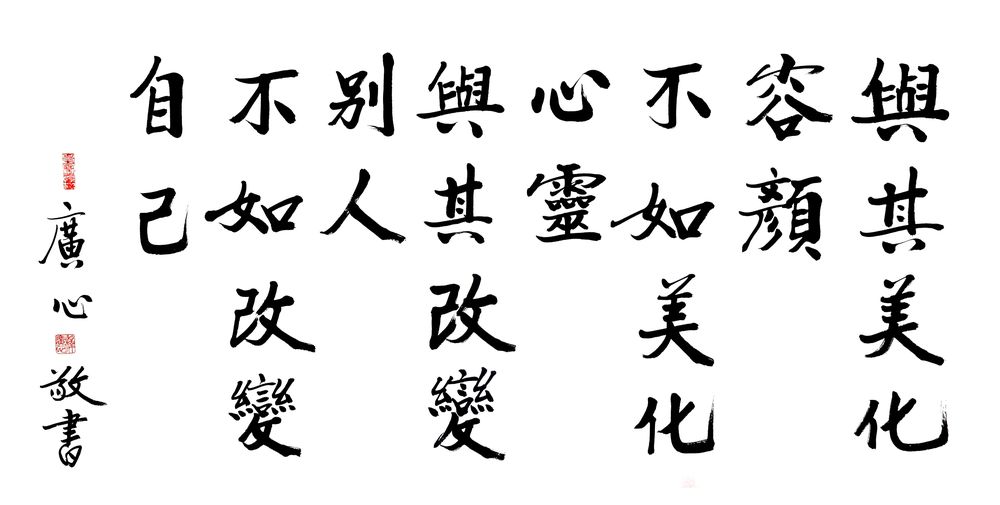 與其美化
容顏
不如美化
心靈
與其改變
別人
不如改變
自己
廣心敬書